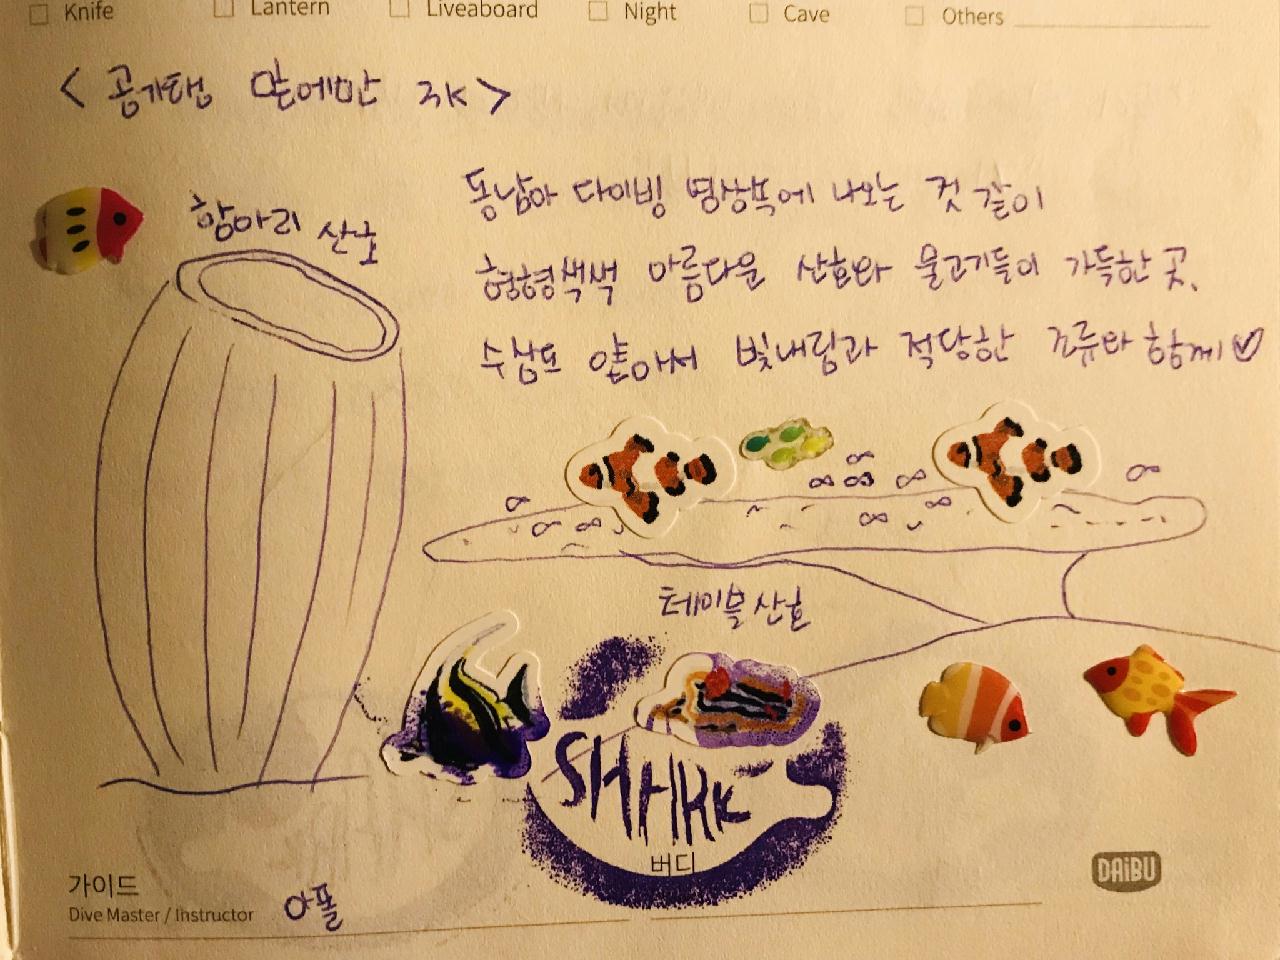 Knife Lantern Liveaboard Night Cave Others
<공기탱 말에만 ㅋㅋ>
항아리 산호
동남아 다이빙 영상속에 나오는 것 같이
형형색색 아름다운 산호와 물고기들이 가득한 곳.
수심도 얕아서 빛내림과 적당한 조류와 함께♡
테이블 산호
SHARK'S
버디
가이드
Dive Master / Instructor 아폴
DAiBU